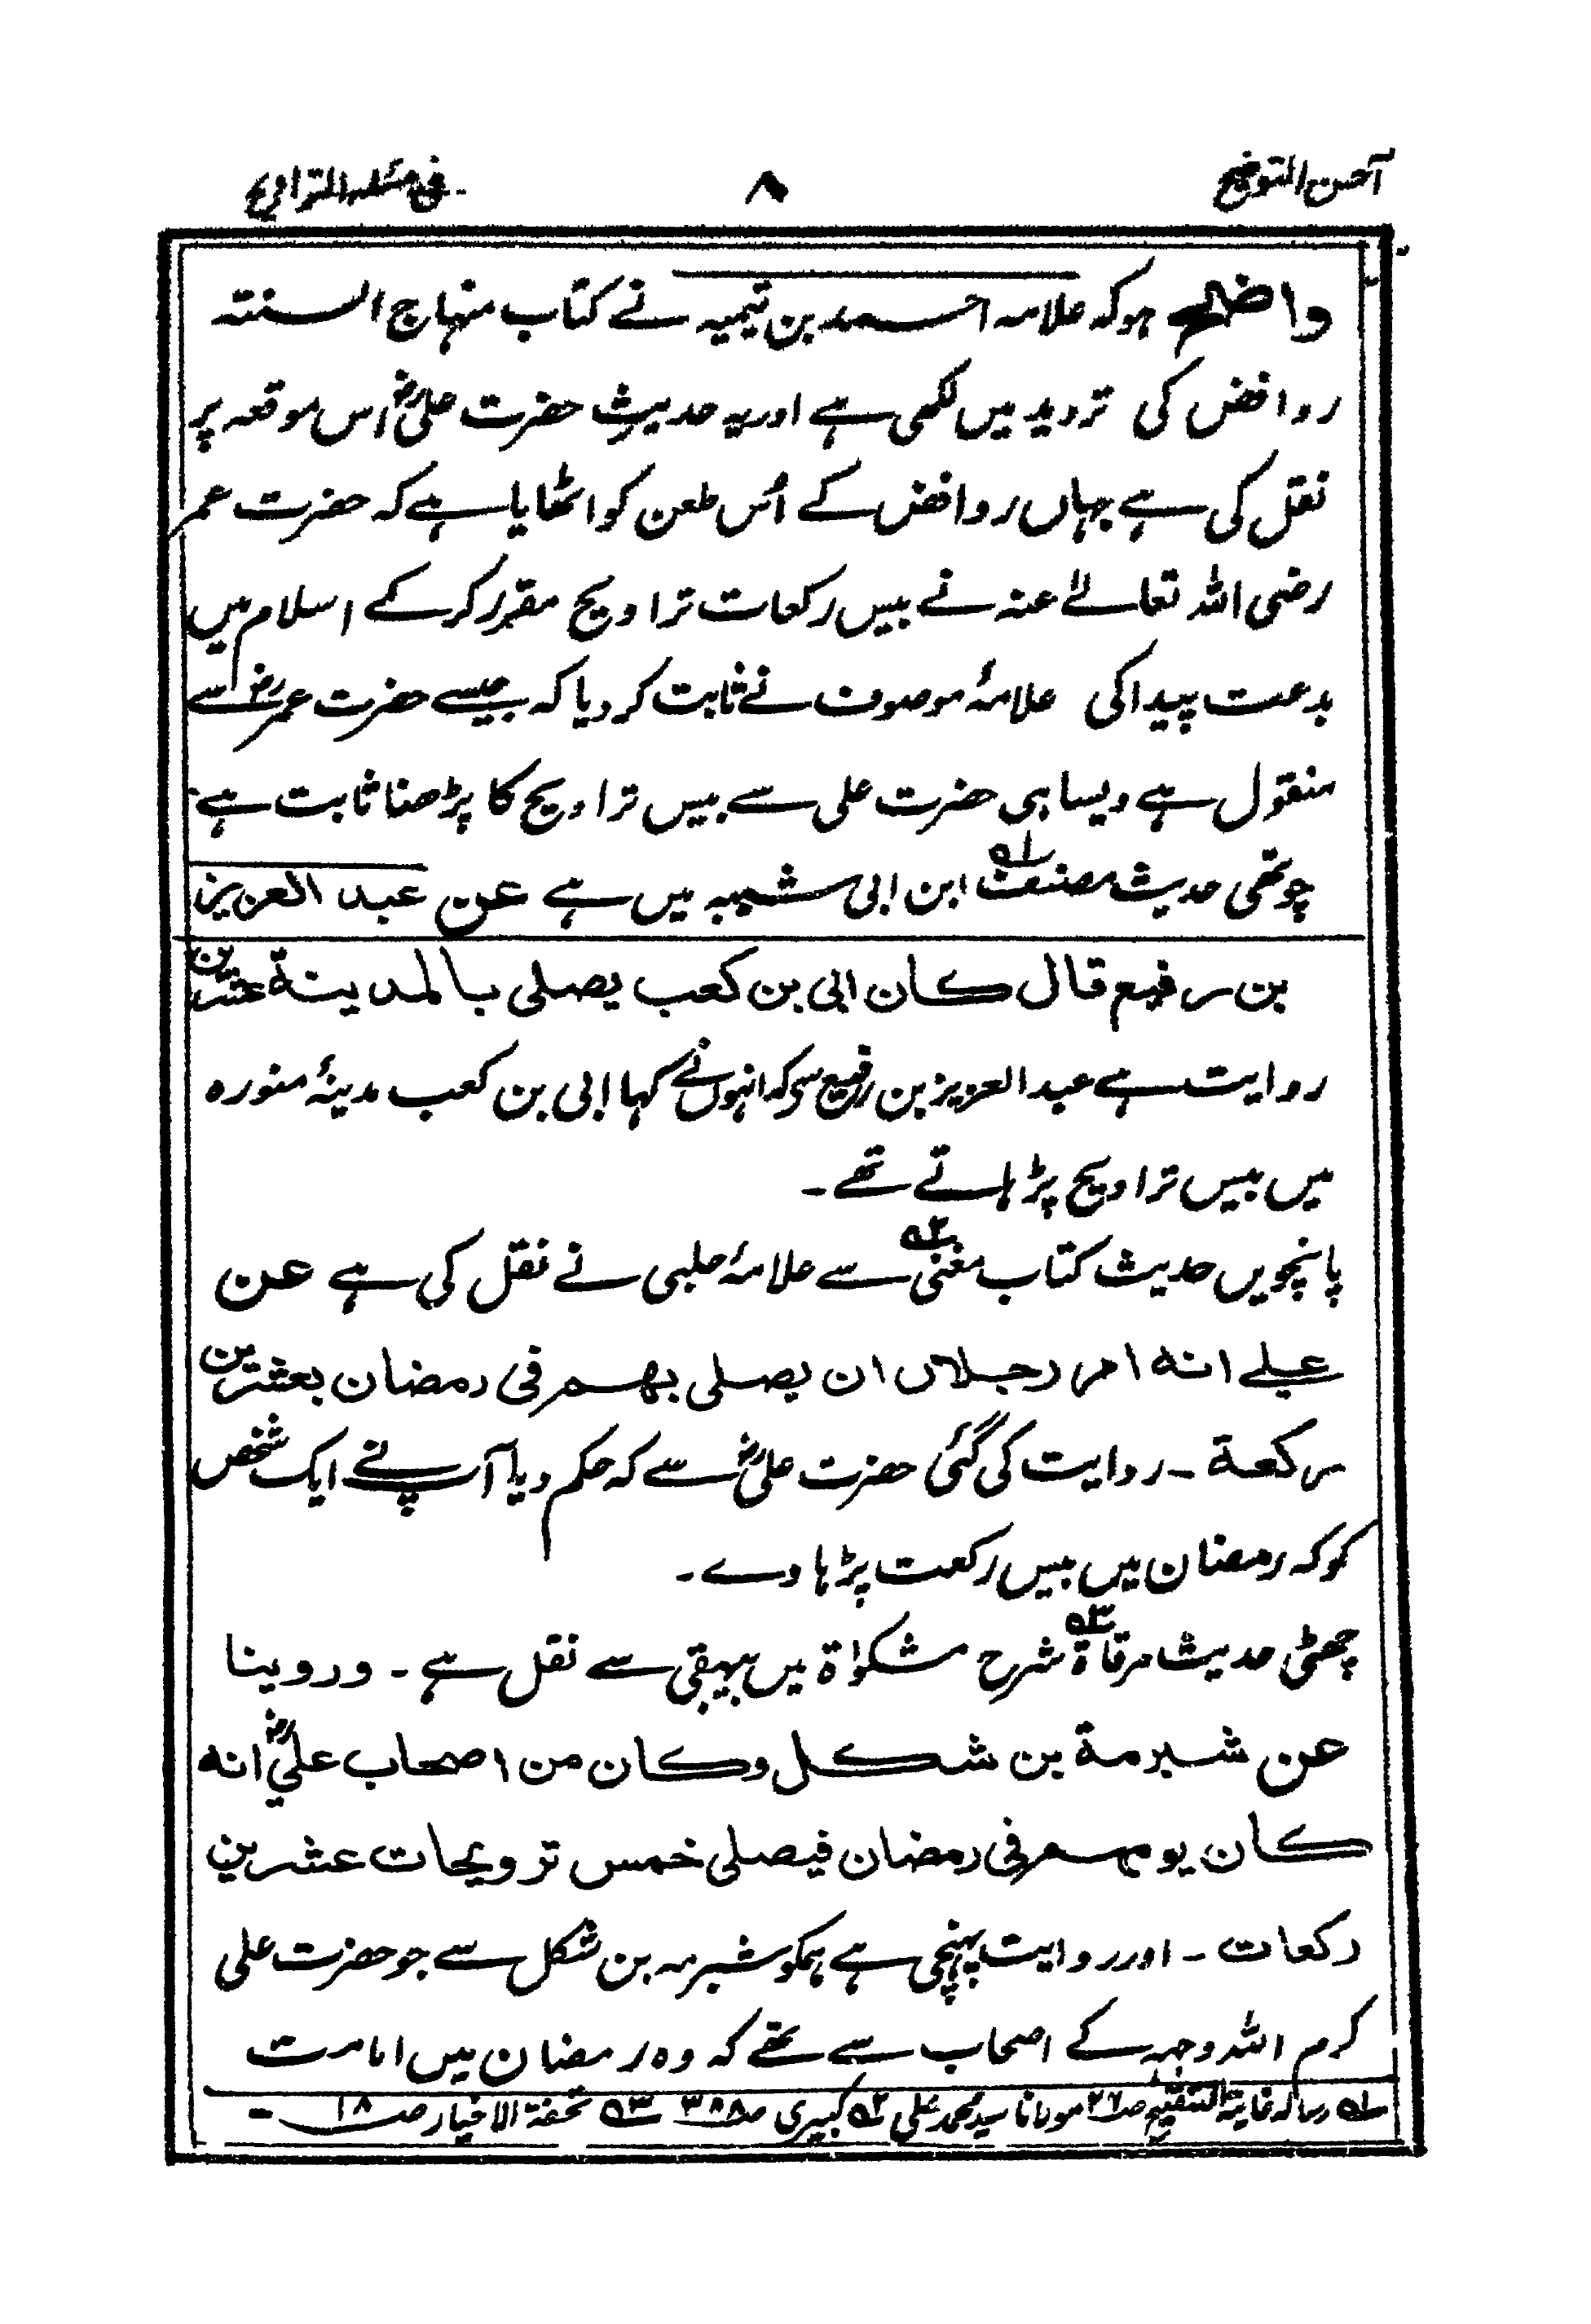 آحسن التوضیح ۸ فی مسئلہ التراویح
واضح ہو کہ علامہ احمد بن تیمیہ نے کتاب منہاج السنتہ
روافض کی تردید میں لکھی ہے اور یہ حدیث حضرت علیؓ اس موقعہ پر
نقل کی ہے جہاں روافض کے اُس طعن کو اٹھایا ہے کہ حضرت عمر
رضی اللہ تعالےٰ عنہ نے بیس رکعات تراویح مقرر کر کے اسلام میں
بدعت پیدا کی علامۂ موصوف نے ثابت کر دیا کہ جیسے حضرت عمرؓ سے
منقول ہے ویسا ہی حضرت علی سے بیس تراویح کا پڑھنا ثابت ہے
چوتھی حدیث مصنف ۱؎ ابن ابی شیبہ میں ہے عن عبد العزیز
بن رفیع قال کان ابی بن کعب یصلی بالمدینۃ عشرین
روایت ہے عبد العزیز بن رفیع سی کہ انہوں نے کہا ابی بن کعب مدینۂ منورہ
میں بیس تراویح پڑہاتے تھے ۔
پانچویں حدیث کتاب مغنی ۲؎ سے علامۂ حلبی نے نقل کی ہے عن
علے انہ امر رجلاں ان یصلی بھم فی رمضان بعشرین
رکعۃ ۔ روایت کی گئی حضرت علیؓ سے کہ حکم دیا آپ نے ایک شخص
کو کہ رمضان میں بیس رکعت پڑہاوے ۔
چھٹی حدیث مرقاۃ ۳؎ شرح مشکواۃ میں بیہقی سے نقل ہے ۔ وروینا
عن شبرمۃ بن شکل وکان من اصحاب علیؓ انہ
کان یومھم فی رمضان فیصلی خمس ترویحات عشرین
رکعات ۔ اور روایت پہنچی ہے ہمکو شبرمہ بن شکل سے جو حضرت علی
کرم اللہ وجہہ کے اصحاب سے تھے کہ وہ رمضان میں امامت
۱؎ رسالہ غایتہ التنقیح ص۲۶ مولانا سید محمد علی ۲؎ کبیری ص۳۸۸ ۳؎ تحفۃ الاخیار ص۱۸ ۔